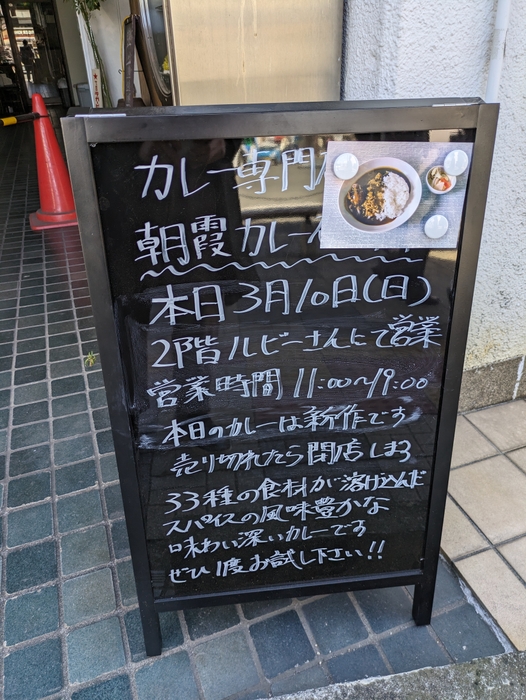 カレー専門
朝霞カレー
本日3月10日(日)
2階ルビーさんにて営業
営業時間 11:00〜19:00
本日のカレーは新作です
売り切れたら閉店しまる
33種の食材が溶け込んだ
スパイスの風味豊かな
味わい深いカレーです
ぜひ1度お試し下さい!!